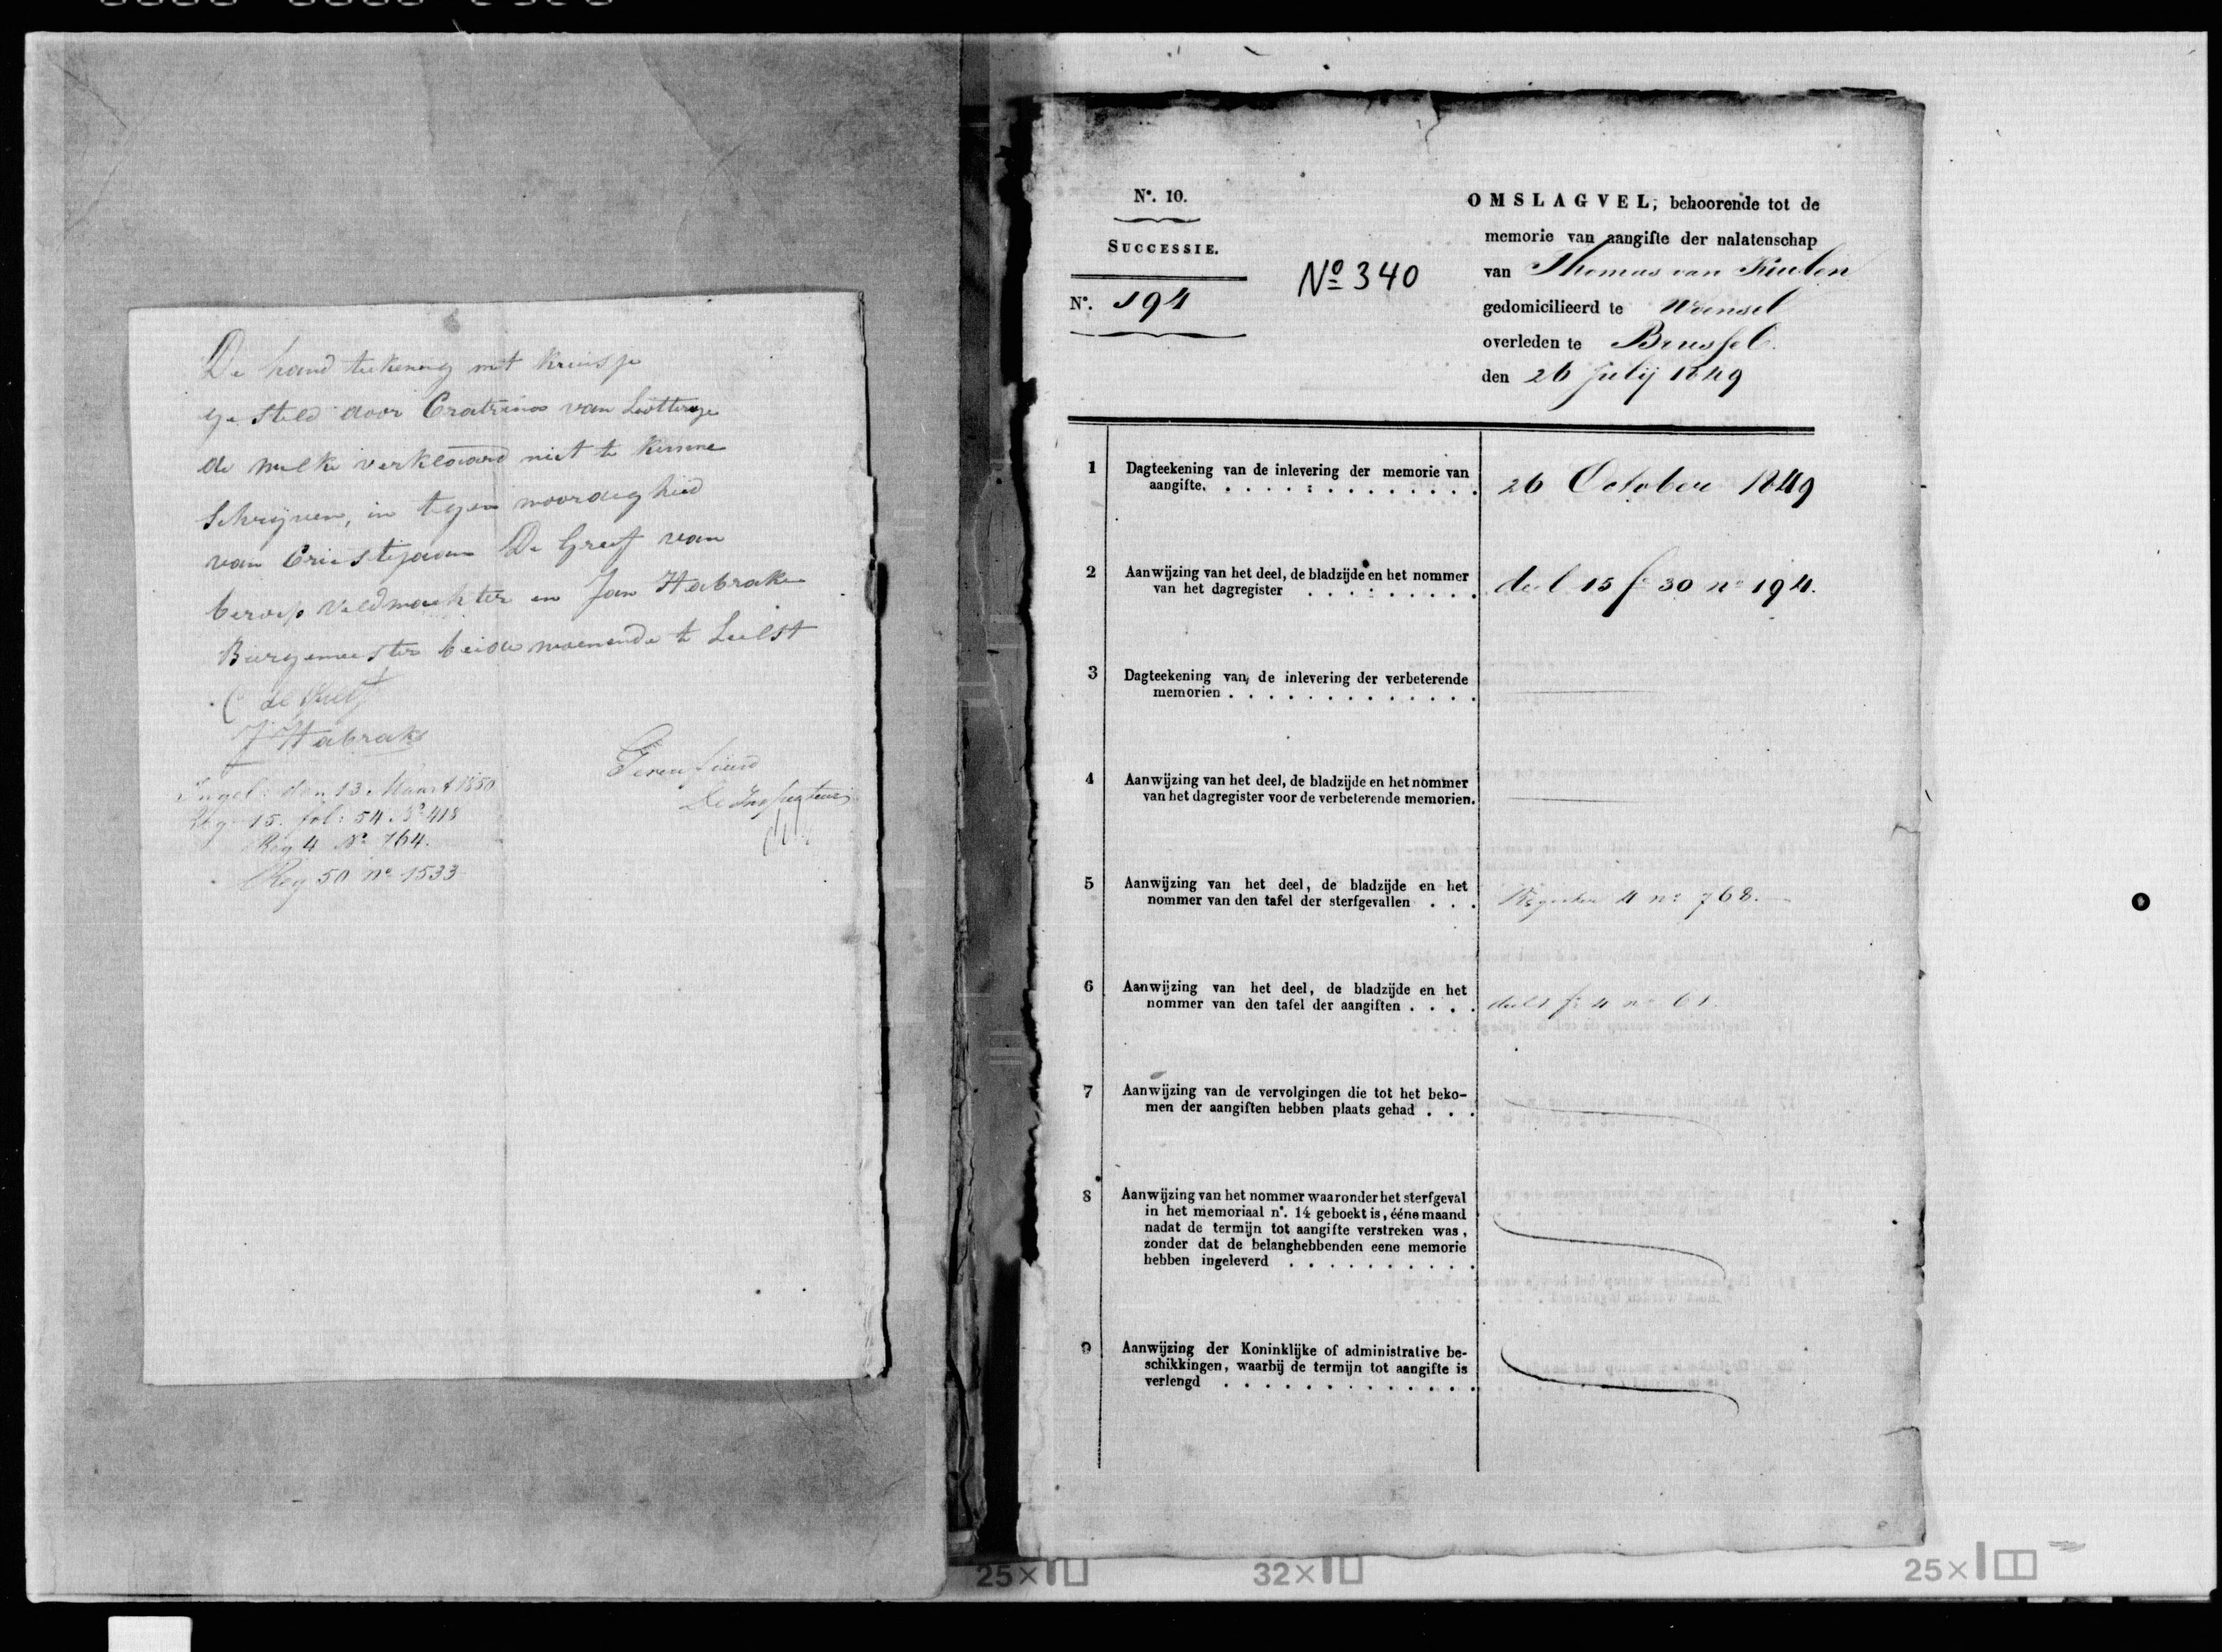 De hand tekening met kruisje
ge steld door Catrina van
de welke verklaard niet te kunne
Schrijven, in tegen woordig heid
van Cristijaan De Greef van
beroep Veldwachter en Jan Habrake
Burgemeester beide woenende te Lielst
C de Greef
J Habrake
Ingel: den 13 Maart 1850
Reg 15. fol: 54. N° 418
Reg 4 N° 764.
Reg 50 n° 1533
De Inspecteur
N°. 10.
SUCCESSIE.
N°. 194
N° 340
OMSLAGVEL, behoorende tot de
memorie van aangifte der nalatenschap
van Thomas van Keulen
gedomicilieerd te Woensel
overleden te Brussel.
den 26 Julij 1849
1 Dagteekening van de inlevering der memorie van
aangifte. . . . . . . . . . . . . . 26 October 1849
2 Aanwijzing van het deel, de bladzijde en het nommer
van het dagregister . . . . . . . . . deel 15 f° 30 n° 194.
3 Dagteekening van de inlevering der verbeterende
memorien . . . . . . . . . . . . .
4 Aanwijzing van het deel, de bladzijde en het nommer
van het dagregister voor de verbeterende memorien.
5 Aanwijzing van het deel, de bladzijde en het
nommer van den tafel der sterfgevallen . . . Register 4 n° 768.
6 Aanwijzing van het deel, de bladzijde en het
nommer van den tafel der aangiften . . . . deel 1 f° 4 n° 61.
7 Aanwijzing van de vervolgingen die tot het beko-
men der aangiften hebben plaats gehad . . .
8 Aanwijzing van het nommer waaronder het sterfgeval
in het memoriaal n°. 14 geboekt is, ééne maand
nadat de termijn tot aangifte verstreken was,
zonder dat de belanghebbenden eene memorie
hebben ingeleverd . . . . . . . . . .
9 Aanwijzing der Koninklijke of administrative be-
schikkingen, waarbij de termijn tot aangifte is
verlengd . . . . . . . . . . . . .
25×
32×
25×